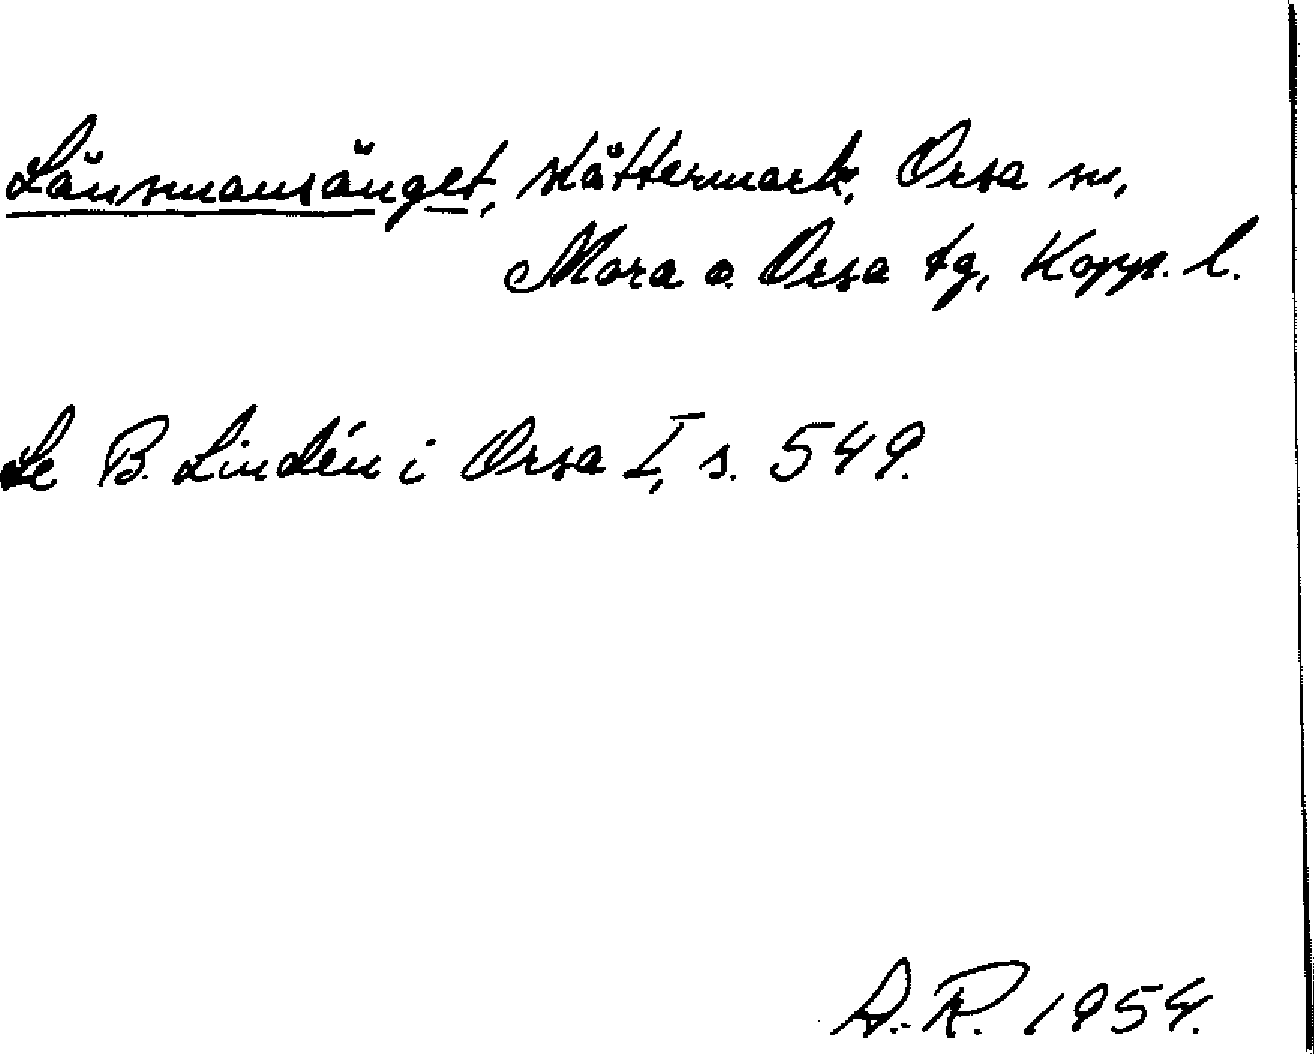 Länsmansänget, slåttermark, Orsa sn,
Mora o. Orsa tg, Kopp. l.
Se B. Lindén i Orsa I, s. 549.
A.R. 1954.